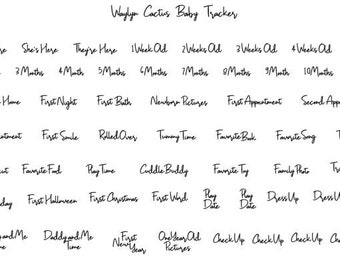 Waylyn Cactus Baby Tracker
She's Here They're Here 1 Week Old 2 Weeks Old 3 Weeks Old 4 Weeks Old
3 Months 4 Months 5 Months 6 Months 7 Months 8 Months 9 Months 10 Months
Home First Night First Bath Newborn Pictures First Appointment Second
First Smile Rolled Over Tummy Time Favorite Book Favorite Song
Favorite Food Play Time Cuddle Buddy Favorite Toy Family Photo
First Halloween First Christmas First Word Play Date Play Date Dress Up Dress Up
and Me Time Daddy and Me Time First New Year One Year Old Pictures Check Up Check Up Check Up Check Up